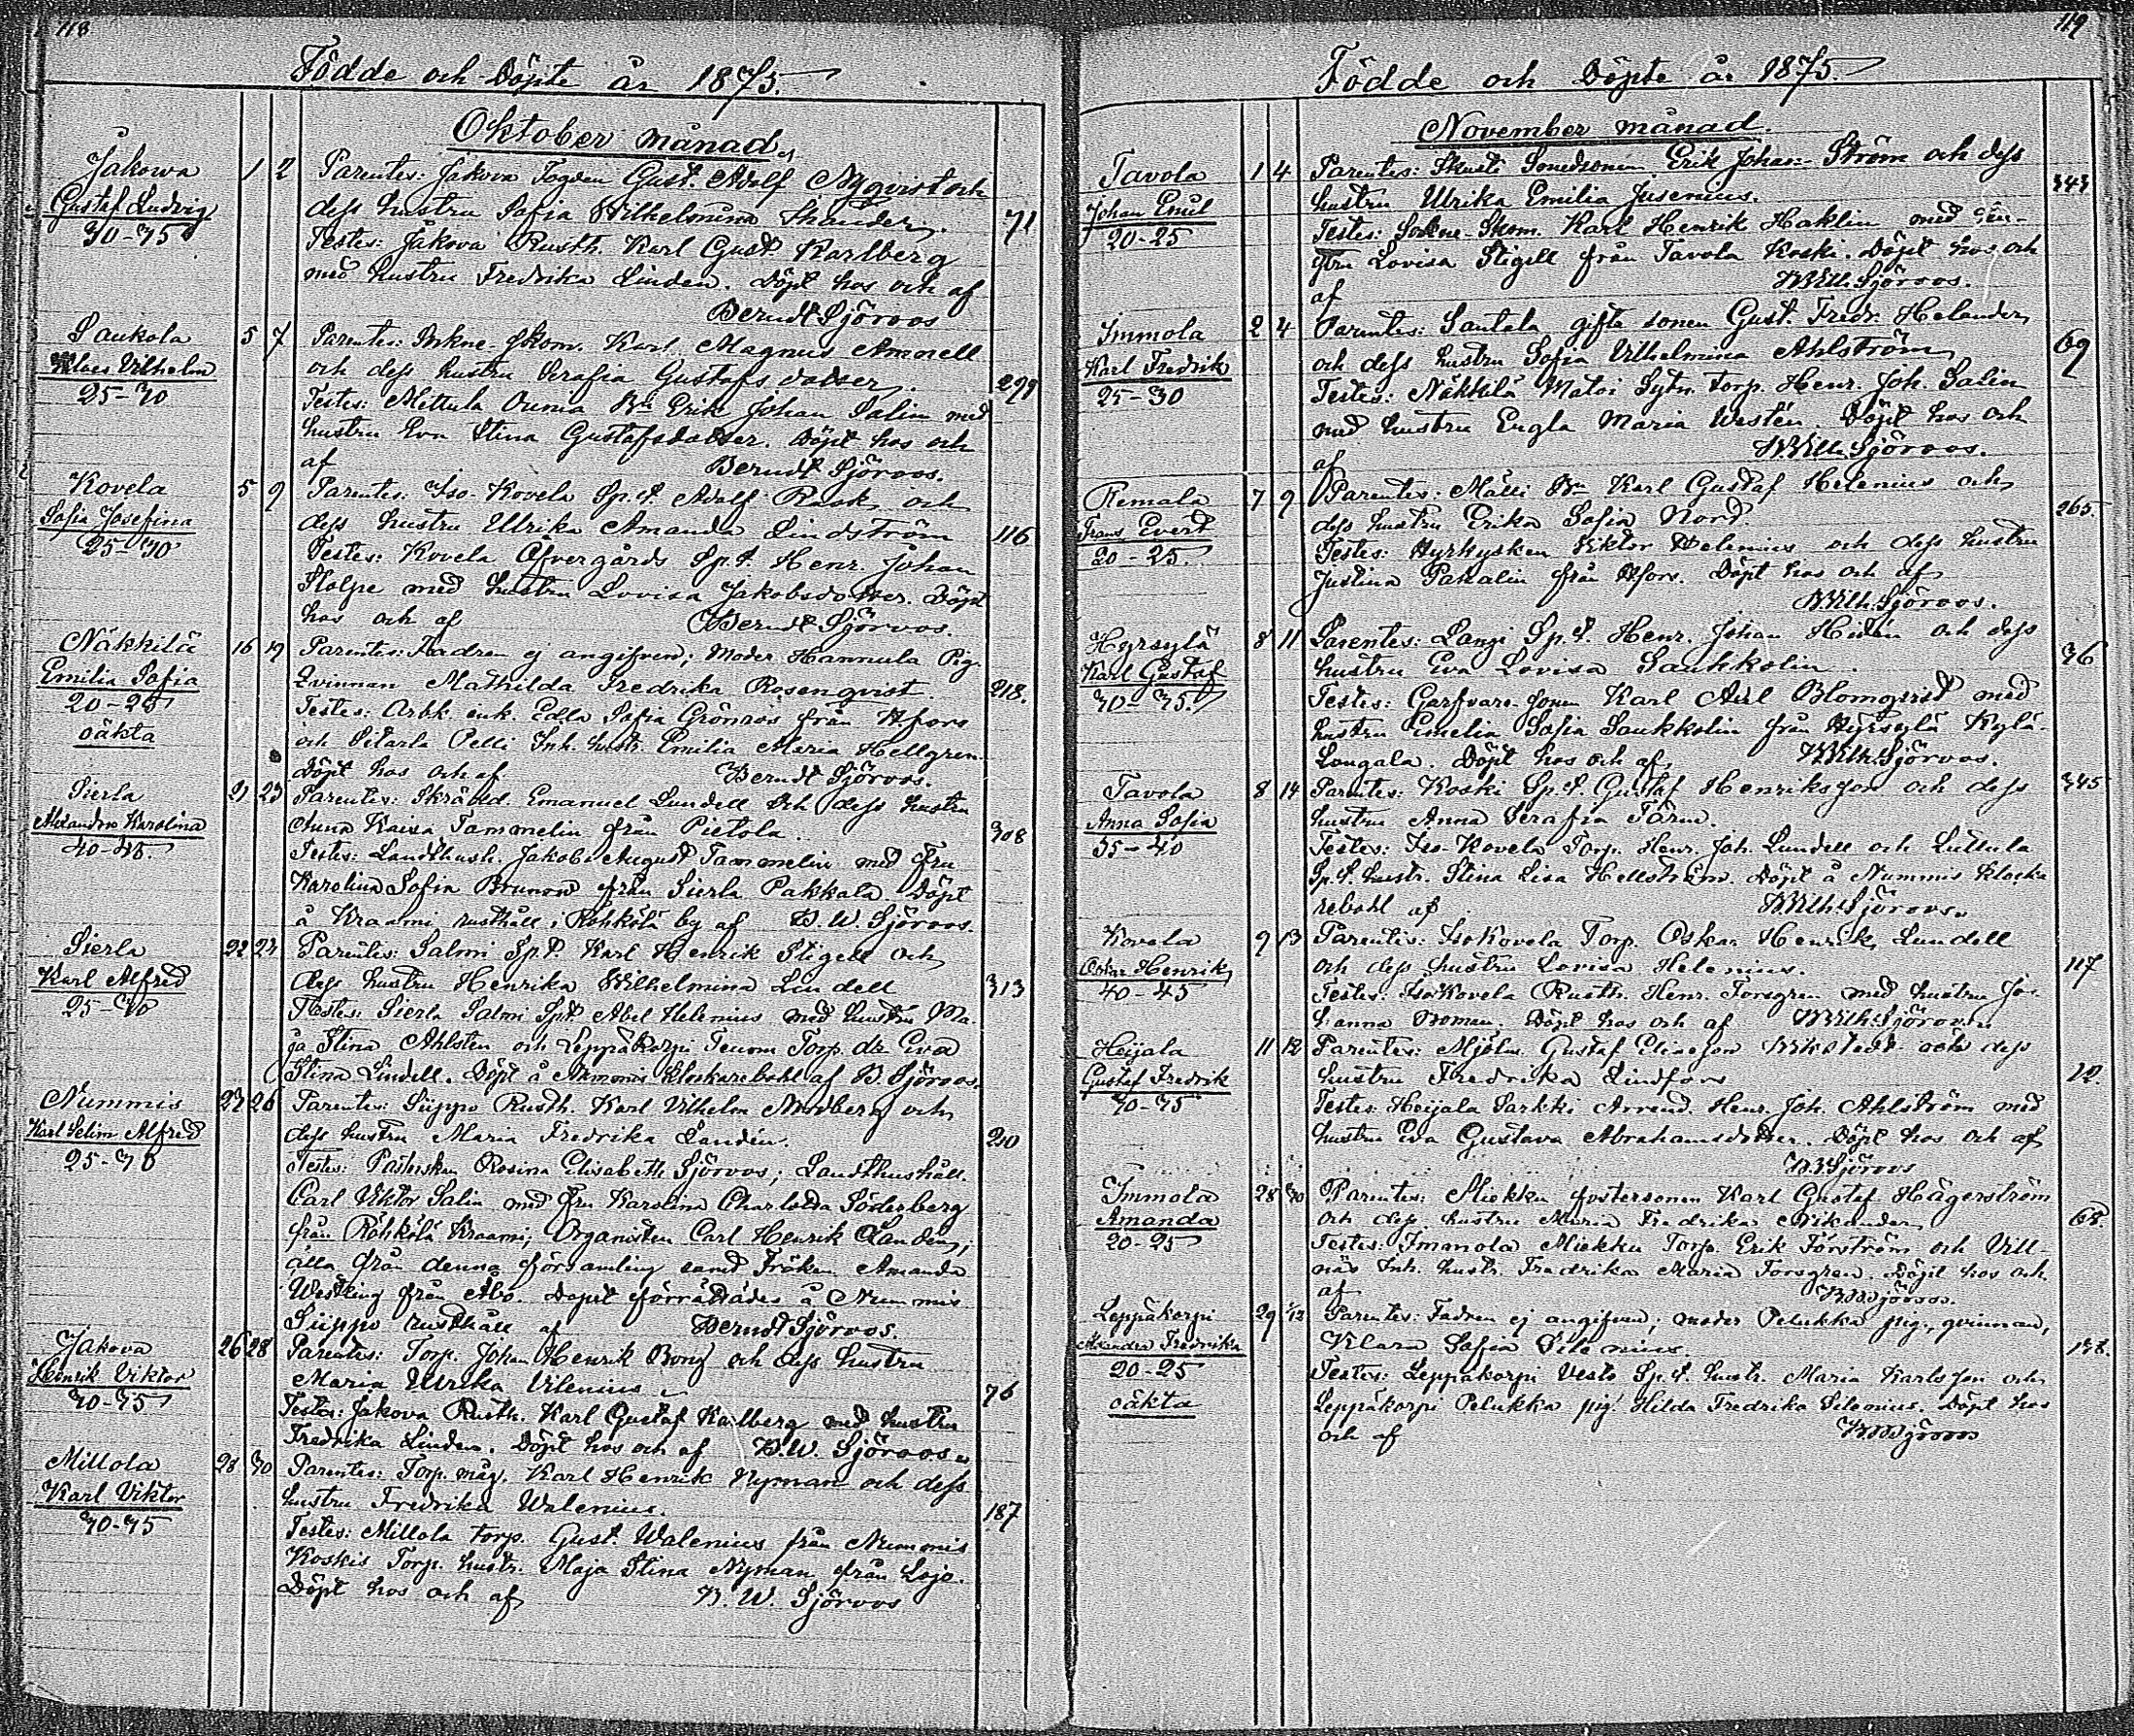 118
Födde och Döpte år 1875.
Oktober månad
Jakova
Gustaf Ludvig
30-35
1 2
Parentes: Jakova Fogden Gust. Adolf Nyqvist och
dess hustru Sofia Wilhelmina
71
Testes: Jakova Rusth. Karl Gust. Karlberg
med hustru Fredrika Linden. Döpt hos och af
Berndt Sjöroos
Saukola
Vilhelm
25-30
5 7
Parentes: Sokne-skom. Karl Magnus Amnell
och dess hustru Serafia Gustafsdotter.
299
Testes: Mettula Ounia Bn Erik Johan Salin med
hustru Eva Stina Gustafsdotter. Döpt hos och
af Berndt Sjöroos.
Kovela
Sofia Josefina
25-30
5 9
Parentes: Iso-Kovela Sp.t. Adolf Rask och
dess hustru Ulrika Amanda Lindström
116
Testes: Kovela Öfvergårds Sp.t. Henr. Johan
Stolpe med hustru Lovisa Jakobsdotter. Döpt
hos och af Berndt Sjöroos.
Näkkilä
Emilia Sofia
20-25
oäkta
16 19
Parentes: Fadren ej angifven; Moder Hannula Pig-
qvinnan Mathilda Fredrika Rosenqvist.
218.
Testes: Arbk. enk. Edla Sofia Grönroos från Hfors
och Sitarla Pelli Inh. hustr. Emilia Maria Hellgren.
Döpt hos och af Berndt Sjöroos.
Sierla
Alexandra Karolina
40-45.
21 23
Parentes: Skrädd. Emanuel Lundell och dess hustru
Anna Kaisa Tammelin från Pietola.
308
Testes: Landthush. Jakob August Tammelin med Fru
Karolina Sofia Brunow från Sierla Pakkala Döpt
å Kraami rusthåll i Röhkölä by af B. W. Sjöroos.
Sierla
Karl Alfred
25-30
22 24
Parentes: Salmi Sp.t. Karl Henrik Stigell och
dess hustru Henrika Wilhelmina Lindell
313
Testes: Sierla Salmi Spt. Abel Helenius med hustru Ma-
ja Stina Ahlsten och Leppäkorpi Tenom Torp. dr Eva
Stina Lindell. Döpt å Nummis Klockarebohl af B. Sjöroos.
Nummis
Karl Selim Alfred
25-30
23 26
Parentes: Siippo Rusth. Karl Vilhelm Nordberg och
dess hustru Maria Fredrika Landén.
210
Testes: Pastorskan Rosina Elisabeth Sjöroos; Landthushåll.
Carl Viktor Salin med fru Karolina Charlotta Söderberg
från Röhkölä Kraami; Organisten Carl Henrik Landén;
alla från denna församling samt Fröken Amanda
Westling från Åbo. Dopet förrättades å Nummis
Siippo rusthåll af Berndt Sjöroos.
Jakova
Henrik Viktor
30-35
26 28
Parentes: Torp. Johan Henrik Bong och dess hustru
Maria Ulrika Vilenius
76
Testes: Jakova Rusth. Karl Gustaf Kalberg med hustru
Fredrika Linden. Döpt hos och af B. W. Sjöroos.
Millola
Karl Viktor
30-35
28 30
Parentes: Torp. måg. Karl Henrik Nyman och dess
hustru Fredrika Walenius.
187
Testes: Millola torp. Gust. Walenius från Nummis
Koskis Torp. hustr. Maja Stina Nyman från Lojo.
Döpt hos och af B. W. Sjöroos
119
Födde och Döpte år 1875.
November månad.
Tavola
Johan Emil
20-25
1 4
Parentes: Skutti Sonedsonen Erik Johan Ström och dess
hustru Ulrika Emilia Jusenius.
343
Testes: Sokne-Skom. Karl Henrik Haklin med
Lovisa Stigell från Tavola Koski. Döpt hos och
af B Wilh. Sjöroos.
Immola
Karl Fredrik
25-30
2 4
Parentes: Santala gifte sonen Gust. Fredr. Helander
och dess hustru Sofia Vilhelmina Ahlström
69
Testes: Näkkilä Matoi Sytn. torp. Henr. Joh. Salin
med hustru Engla Maria Westén. Döpt hos och
af B Wilh. Sjöroos.
Remala
Frans Evert
20-25.
7 9
Parentes: Mälli Bn Karl Gustaf Helenius och
dess hustru Erika Sofia Nord.
265.
Testes: Hyrkysken Viktor Helenius och dess hustru
Justina Pakalin från Hfors. Döpt hos och af
B. Wilh. Sjöroos.
Hyrsylä
Karl Gustaf
30-35.
8 11
Parentes: Lange Sp.t. Henr. Johan Hedén och dess
hustru Eva Lovisa Saukkolin.
36
Testes: Garfvare-sonen Karl Axel Blomqvist med
hustru Emelia Sofia Saukkolin från Hyrsylä Kylä-
Longala. Döpt hos och af B Wilh. Sjöroos.
Tavola
Anna Sofia
35-40
8 14
Parentes: Koski Sp.t. Gustaf Henriksson och dess
hustru Anna Serafia Färm.
345
Testes: Iso-Kovela Torp. Henr. Joh. Lundell och Luttula
Sp.t. hustr. Stina Lisa Hellström. Döpt å Nummis klocka-
rebohl af B Wilh. Sjöroos.
Kovela
Oskar Henrik
40-45
9 13
Parentes: IsoKovela Torp. Oskar Henrik Lundell
och dess hustru Lovisa Helenius.
117
Testes: IsoKovela Rusth. Henr. Forsgren med hustru Jo-
hanna Boman. Döpt hos och af B Wilh. Sjöroos.
Heijala
Gustaf Fredrik
30-35
11 12
Parentes: Mjöln. Gustaf Eliasson Wikstedt och dess
hustru Fredrika Lindfors
12.
Testes: Heijala Sarkki Arrend. Henr. Joh. Ahlström med
hustru Eva Gustava Abrahamsdotter. Döpt hos och af
B. Sjöroos
Immola
Amanda
20-25
28 30
Parentes: Miekka fostersonen Karl Gustaf Hägerström
och dess hustru Maria Fredrika Nikander
68.
Testes: Immola Miekka Torp. Erik Forström och Vill-
näs Inh. hustr. Fredrika Maria Forsgren. Döpt hos och
af B W Sjöroos.
Leppäkorpi
Alexandra Fredrika
20-25
oäkta
29 1/12
Parentes: Fadren ej angifven; moder Pelukka pig.-qvinnan,
Klara Sofia Silenius.
138.
Testes: Leppäkorpi Vesto Sp.t. hustr. Maria Karlsson och
Leppäkorpi Pelukka pig. Hilda Fredrika Silenius. Döpt hos
och af B W Sjöroos